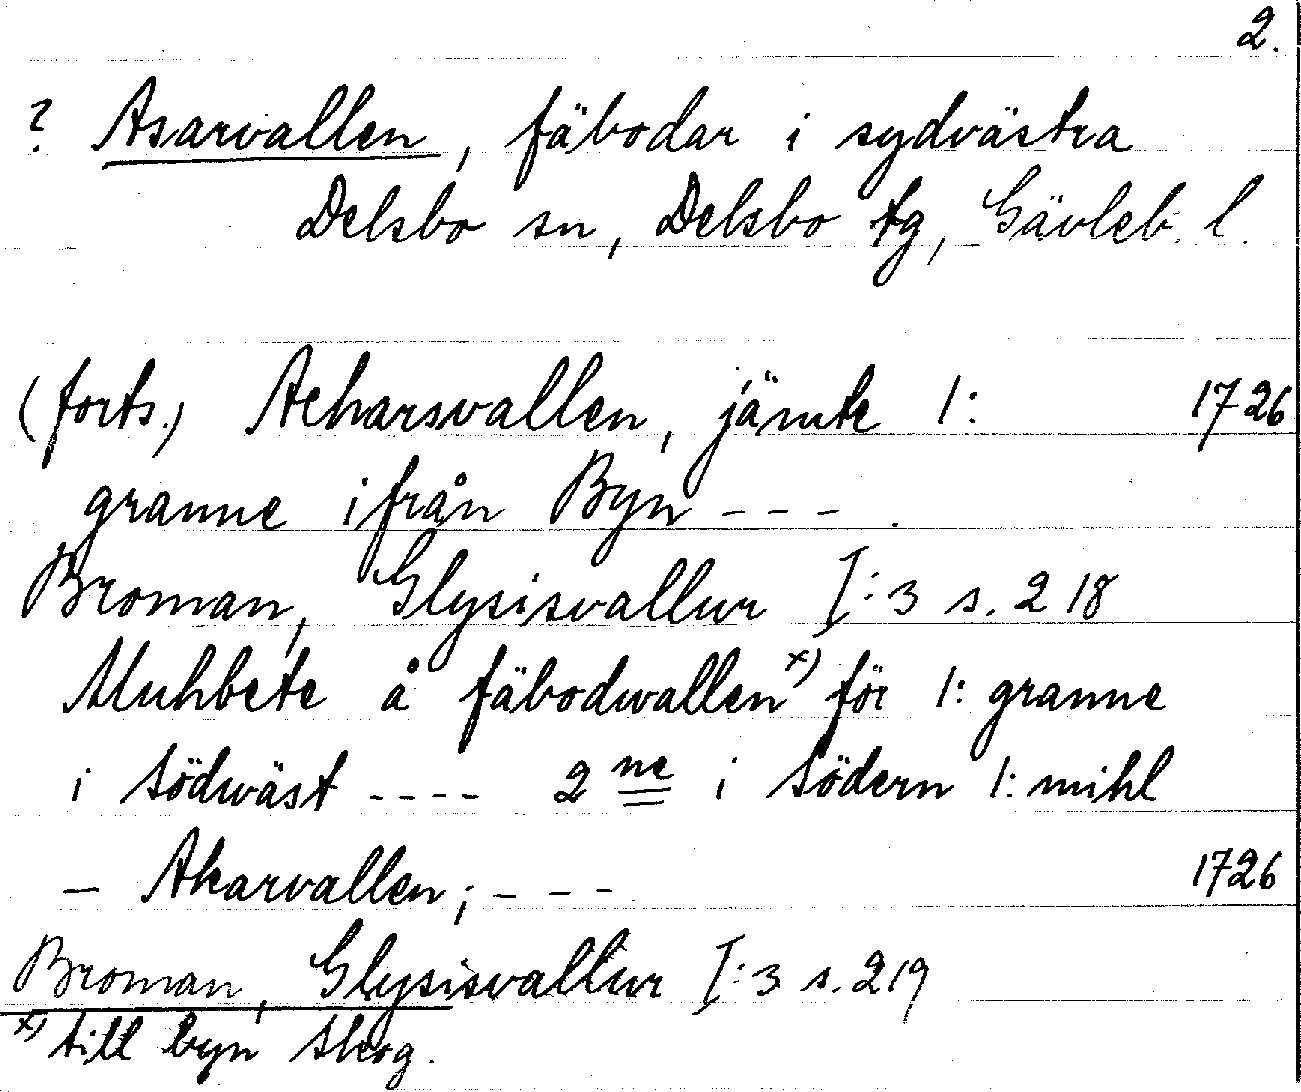 2.
? Asarvallen, fäbodar i sydvästra
Delsbo sn, Delsbo tg, Gävleb. l.
(forts.) Acharsvallen, jämte 1: 1726
granne ifrån Byn - - - .
Broman, Glysisvallur I:3 s. 218
Muhbete å fäbodwallen x) för 1: granne
i södwäst - - - - 2 ne i södern 1: mihl
– Akarvallen; - - - 1726
Broman, Glysisvallur I:3 s. 219
x) till byn Skog.